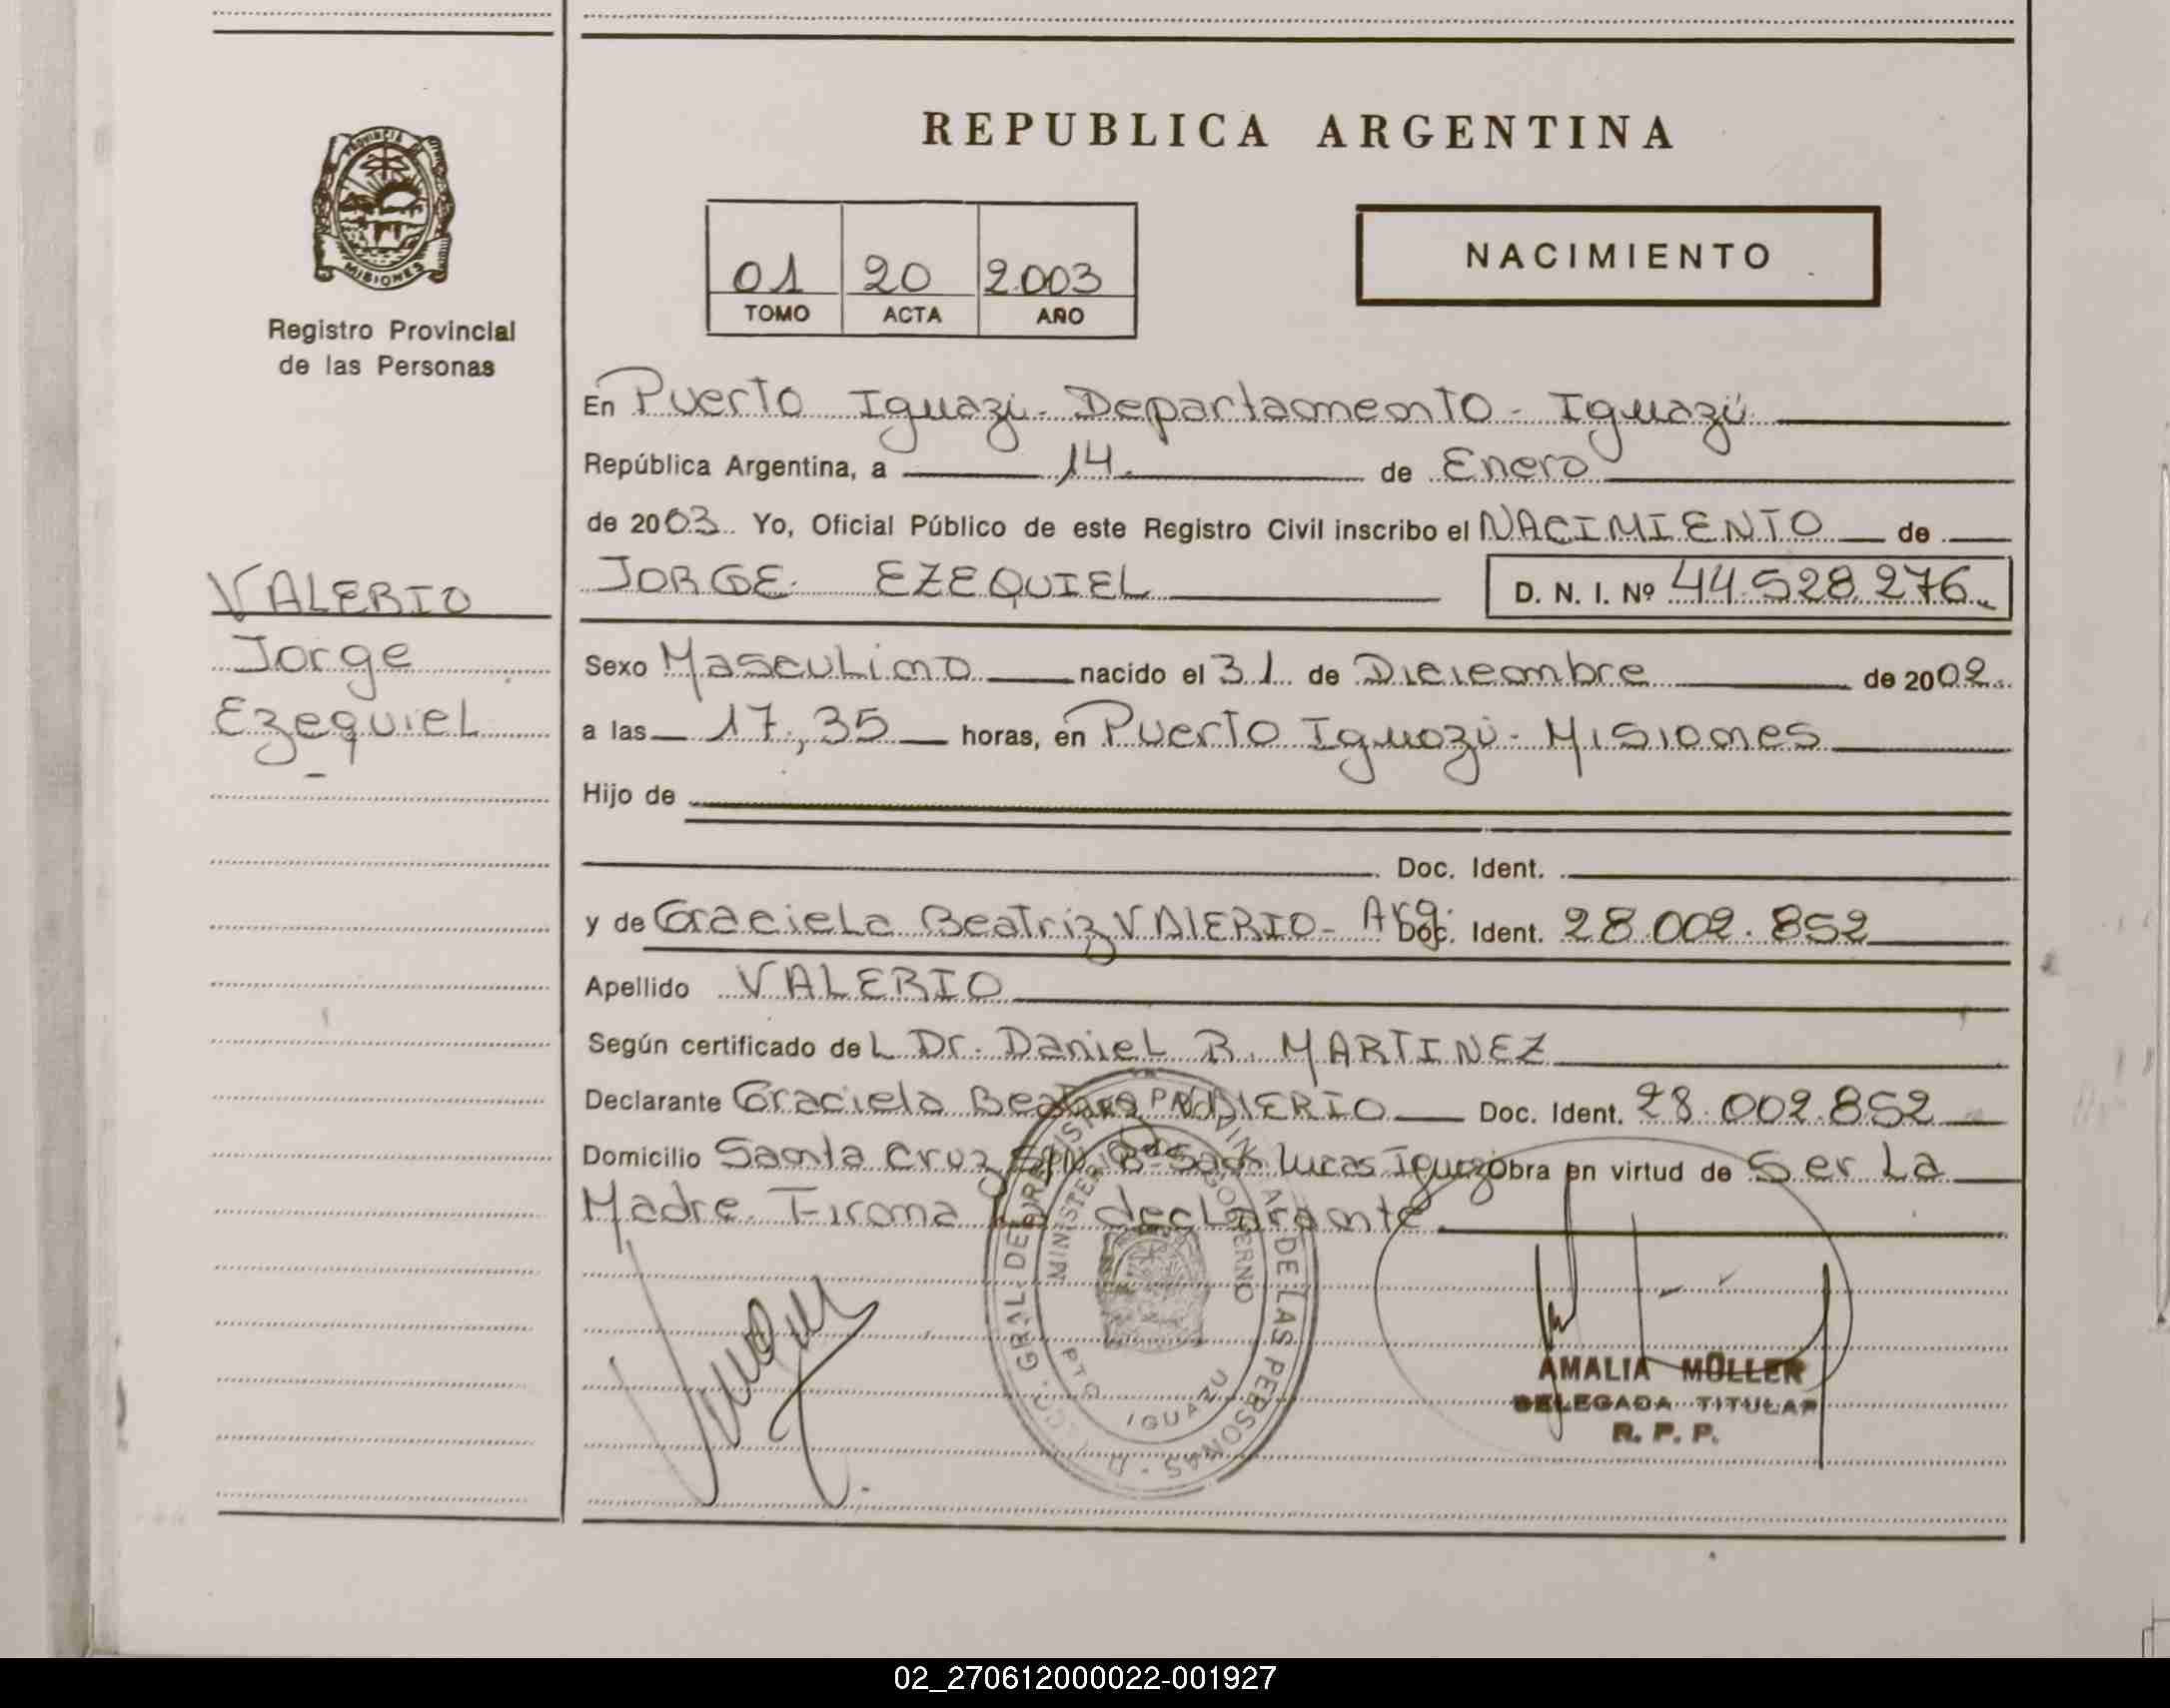 REPUBLICA ARGENTINA
PROVINCIA DE
MISIONES
Registro Provincial
de las Personas
01 20 2.003
TOMO ACTA AÑO
NACIMIENTO
En Puerto Iguazú - Departamento - Iguazú
República Argentina, a 14 de Enero
de 2003 Yo, Oficial Público de este Registro Civil inscribo el NACIMIENTO de
JORGE EZEQUIEL D. N. I. Nº 44.528.276
VALERIO
Jorge
Ezequiel
Sexo Masculino nacido el 31 de Diciembre de 2002
a las 17,35 horas, en Puerto Iguazú - Misiones
Hijo de
Doc. Ident.
y de Graciela Beatriz VALERIO - Arg. Doc. Ident. 28.002.852
Apellido VALERIO
Según certificado del Dr. Daniel R. MARTINEZ
Declarante Graciela Beatriz VALERIO Doc. Ident. 28.002.852
Domicilio Santa Cruz S/N Bº San Lucas Iguazú Obra en virtud de Ser La
Madre. Firma la declarante
GRAL. DEL REGISTRO PROVINCIAL DE LAS PERSONAS
MINISTERIO DE GOBIERNO
PTO IGUAZU
AMALIA MÜLLER
DELEGADA TITULAR
R. P. P.
02_270612000022-001927